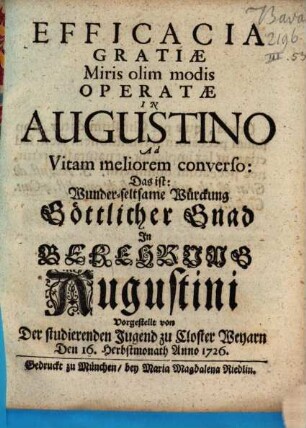 Bava
2196
III. 53
EFFICACIA
GRATIÆ
Miris olim modis
OPERATÆ
IN
AUGUSTINO
Ad
Vitam meliorem converso:
Das ist:
Wunder-seltsame Würckung
Göttlicher Gnad
In
BEKEHRUNG
Augustini
Vorgestellt von
Der studierenden Jugend zu Closter Weyarn
Den 16. Herbstmonath Anno 1726.
Gedruckt zu München / bey Maria Magdalena Riedlin.